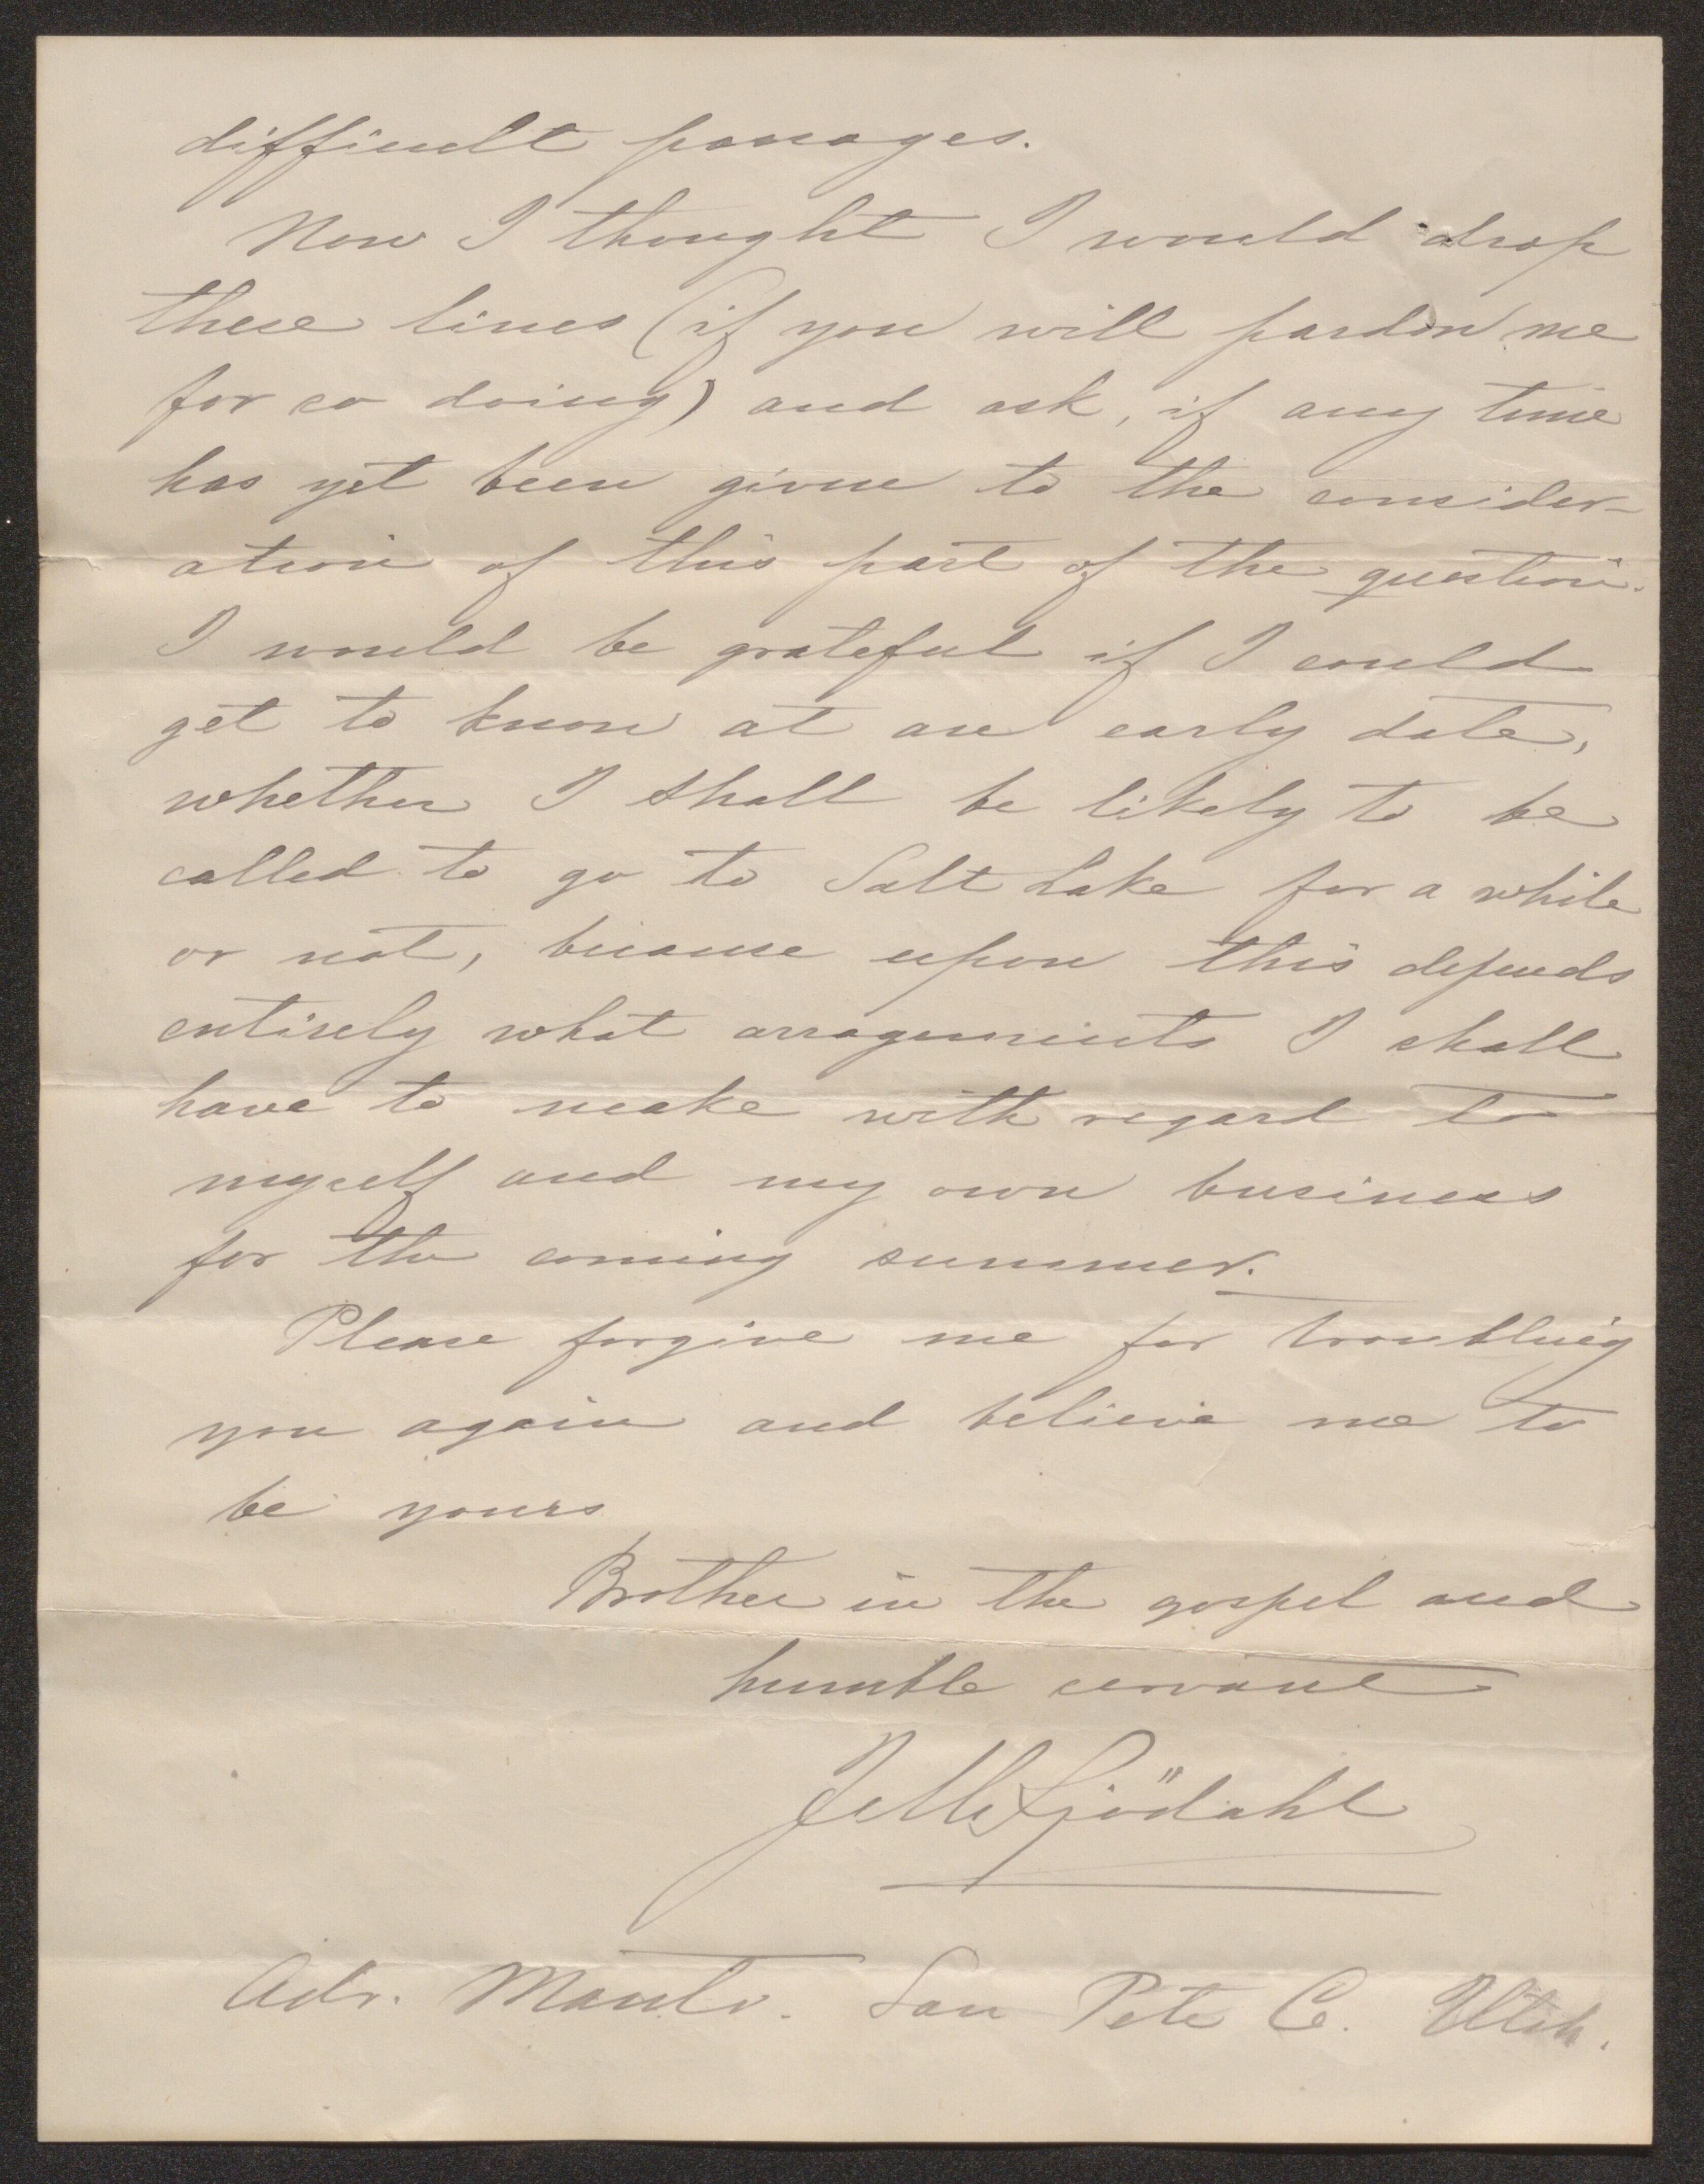 difficult passages.
Now I thought I would drop
these lines (if you will pardon me
for so doing) and ask, if any time
has yet been givne to the consider-
ation of this part of the question.
I would be grateful if I could
get to know at an early date,
whether I shall be likely to be
called to go to Salt Lake for a while
or not, because upon this depends
entirely what arragements I shall
have to make with regard to
myself and my own business
for the coming summer.
Please forgive me for troubling
you again and believe me to
be yours
Brother in the gospel and
humble servant
J M Sjödahl
Adr. Manti. San Pete Co. Utah.